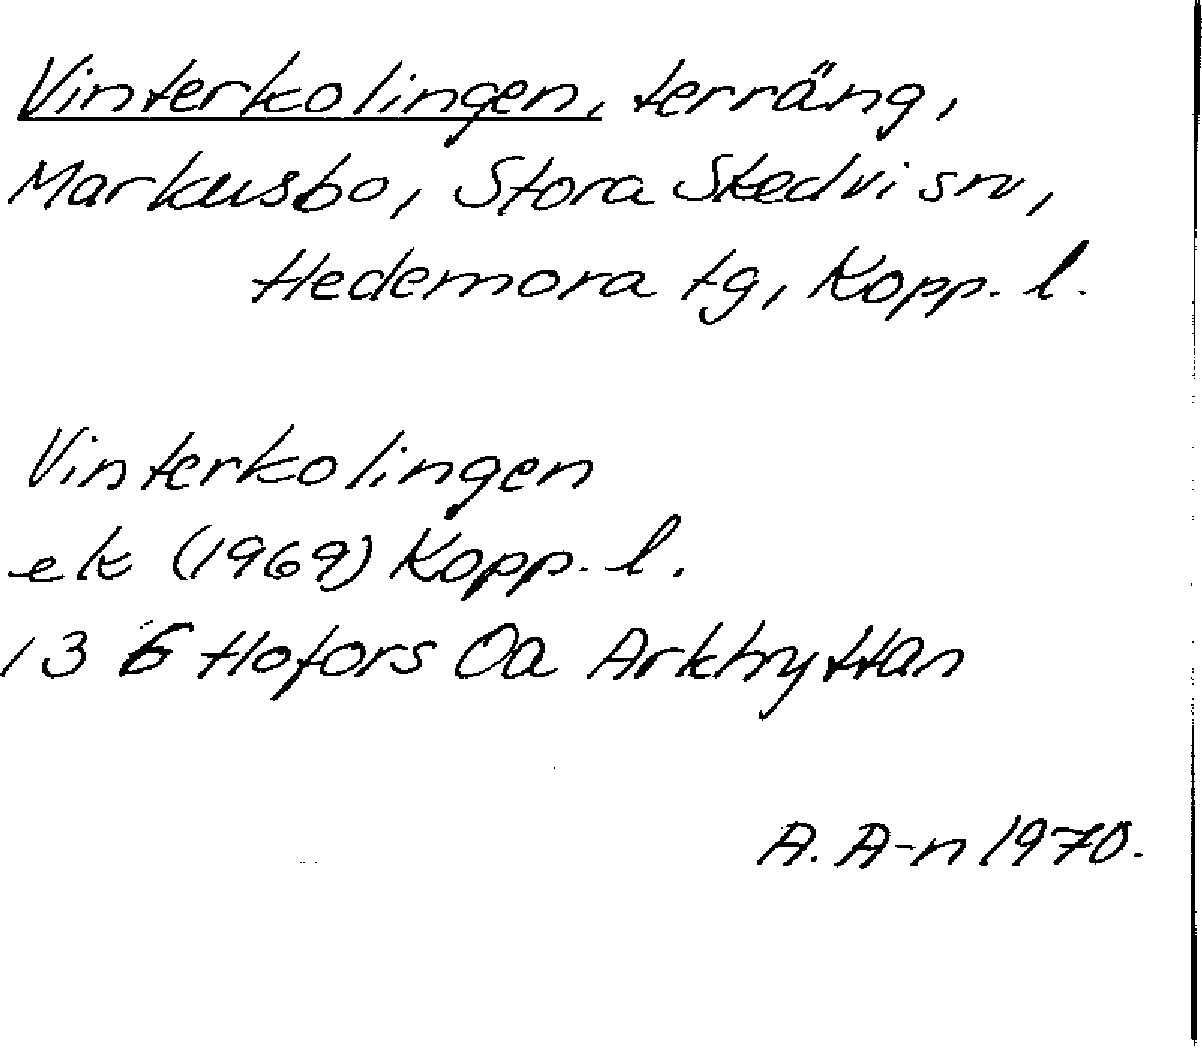 Vinterkolingen, terräng,
Markusbo, Stora Skedvi sn,
Hedemora tg, Kopp. l.
Vinterkolingen
ek (1969) Kopp. l.
13 G Hofors Oa Arkhyttan
A. A-n 1970.